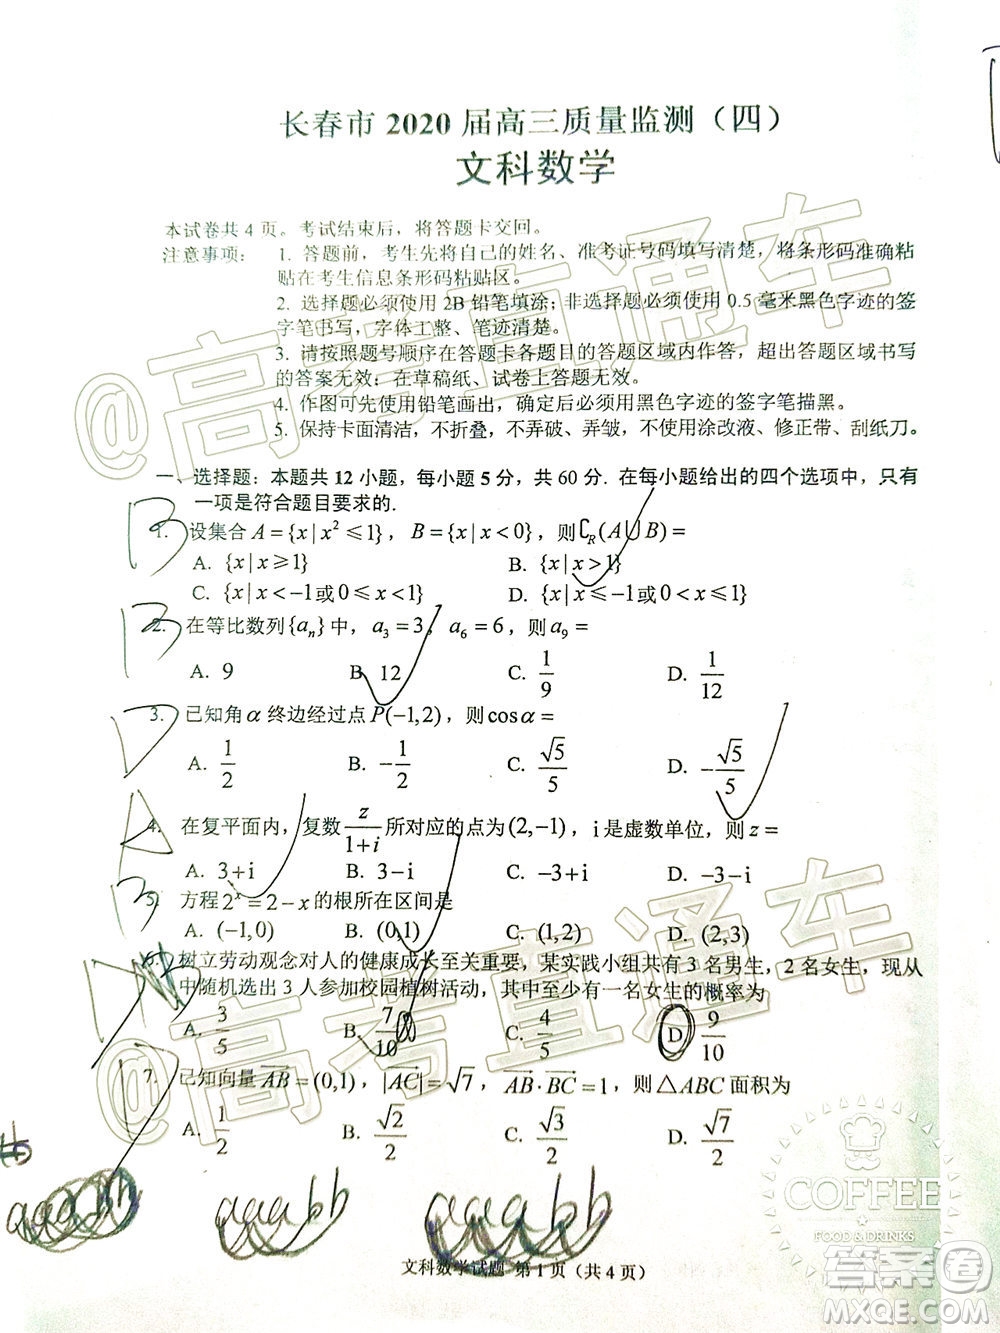 长春市 2020 届高三质量监测（四）
文科数学
本试卷共 4 页。考试结束后，将答题卡交回。
注意事项： 1. 答题前，考生先将自己的姓名、准考证号码填写清楚，将条形码准确粘
贴在考生信息条形码粘贴区。
2. 选择题必须使用 2B 铅笔填涂；非选择题必须使用 0.5 毫米黑色字迹的签
字笔书写，字体工整、笔迹清楚。
3. 请按照题号顺序在答题卡各题目的答题区域内作答，超出答题区域书写
的答案无效；在草稿纸、试卷上答题无效。
4. 作图可先使用铅笔画出，确定后必须用黑色字迹的签字笔描黑。
5. 保持卡面清洁，不折叠，不弄破、弄皱，不使用涂改液、修正带、刮纸刀。
一、选择题：本题共 12 小题，每小题 5 分，共 60 分. 在每小题给出的四个选项中，只有
一项是符合题目要求的.
B 1. 设集合 A={x|x²≤1}，B={x|x<0}，则∁R(A∪B)=
A. {x|x≥1} B. {x|x>1}
C. {x|x<-1或0≤x<1} D. {x|x≤-1或0<x≤1}
B 2. 在等比数列{aₙ}中，a₃=3，a₆=6，则a₉=
A. 9 B. 12 C. 1/9 D. 1/12
D 3. 已知角α终边经过点P(-1,2)，则cosα=
A. 1/2 B. -1/2 C. √5/5 D. -√5/5
A 4. 在复平面内，复数z/(1+i)所对应的点为(2,-1)，i是虚数单位，则z=
A. 3+i B. 3-i C. -3+i D. -3-i
B 5. 方程2ˣ=2-x的根所在区间是
A. (-1,0) B. (0,1) C. (1,2) D. (2,3)
D 6. 树立劳动观念对人的健康成长至关重要，某实践小组共有3名男生，2名女生，现从
中随机选出3人参加校园植树活动，其中至少有一名女生的概率为
A. 3/5 B. 7/10 C. 4/5 D. 9/10
7. 已知向量AB=(0,1)，|AC|=√7，AB·BC=1，则△ABC面积为
A. 1/2 B. √2/2 C. √3/2 D. √7/2
aaabb aaabb aaabb
文科数学试题 第1页（共4页）
@高考直通车
@高考直通车
COFFEE
FOOD & DRINKS
答案圈
MXQE.COM